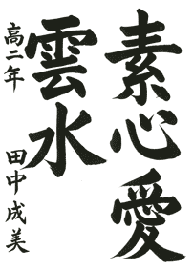 素心愛
雲水
高二年 田中成美